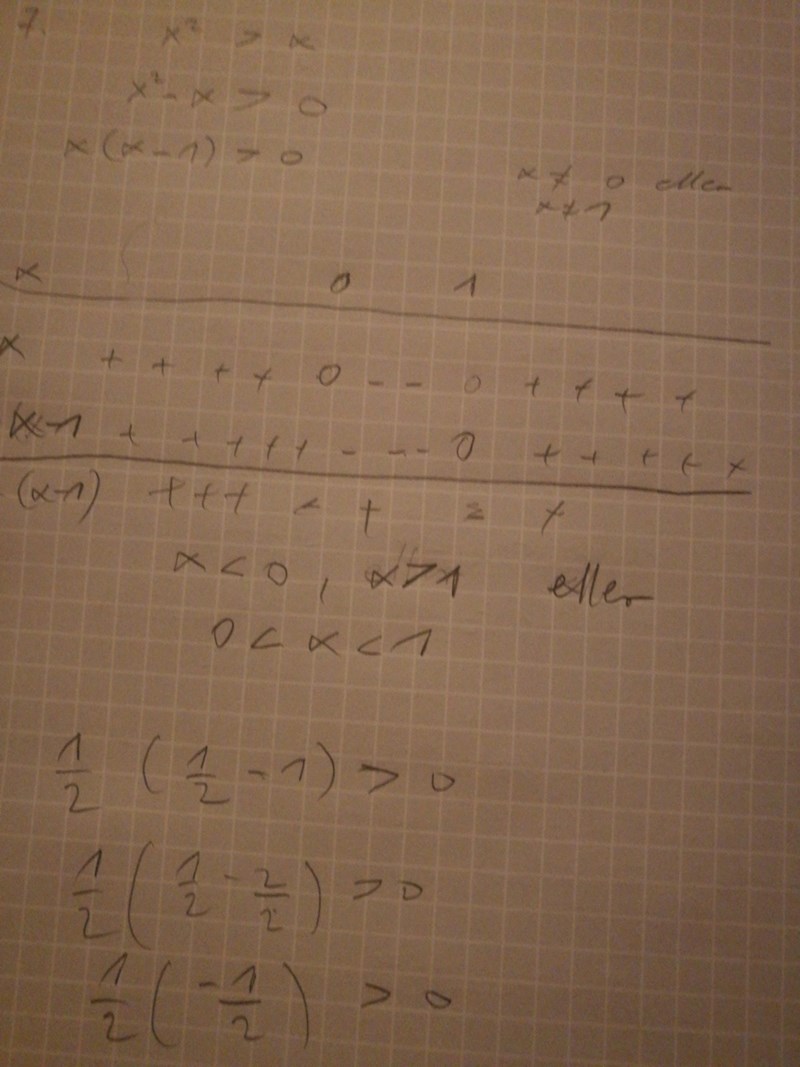 7.
x² > x
x² - x > 0
x(x-1) > 0
x ≠ 0 eller
x ≠ 1
x 0 1
x + + + + 0 - - 0 + + + +
x-1 + + + + + - - - 0 + + + + +
(x-1) + + + < + = +
x < 0, x > 1 eller
0 < x < 1
1/2 (1/2 - 1) > 0
1/2 (1/2 - 2/2) > 0
1/2 (-1/2) > 0